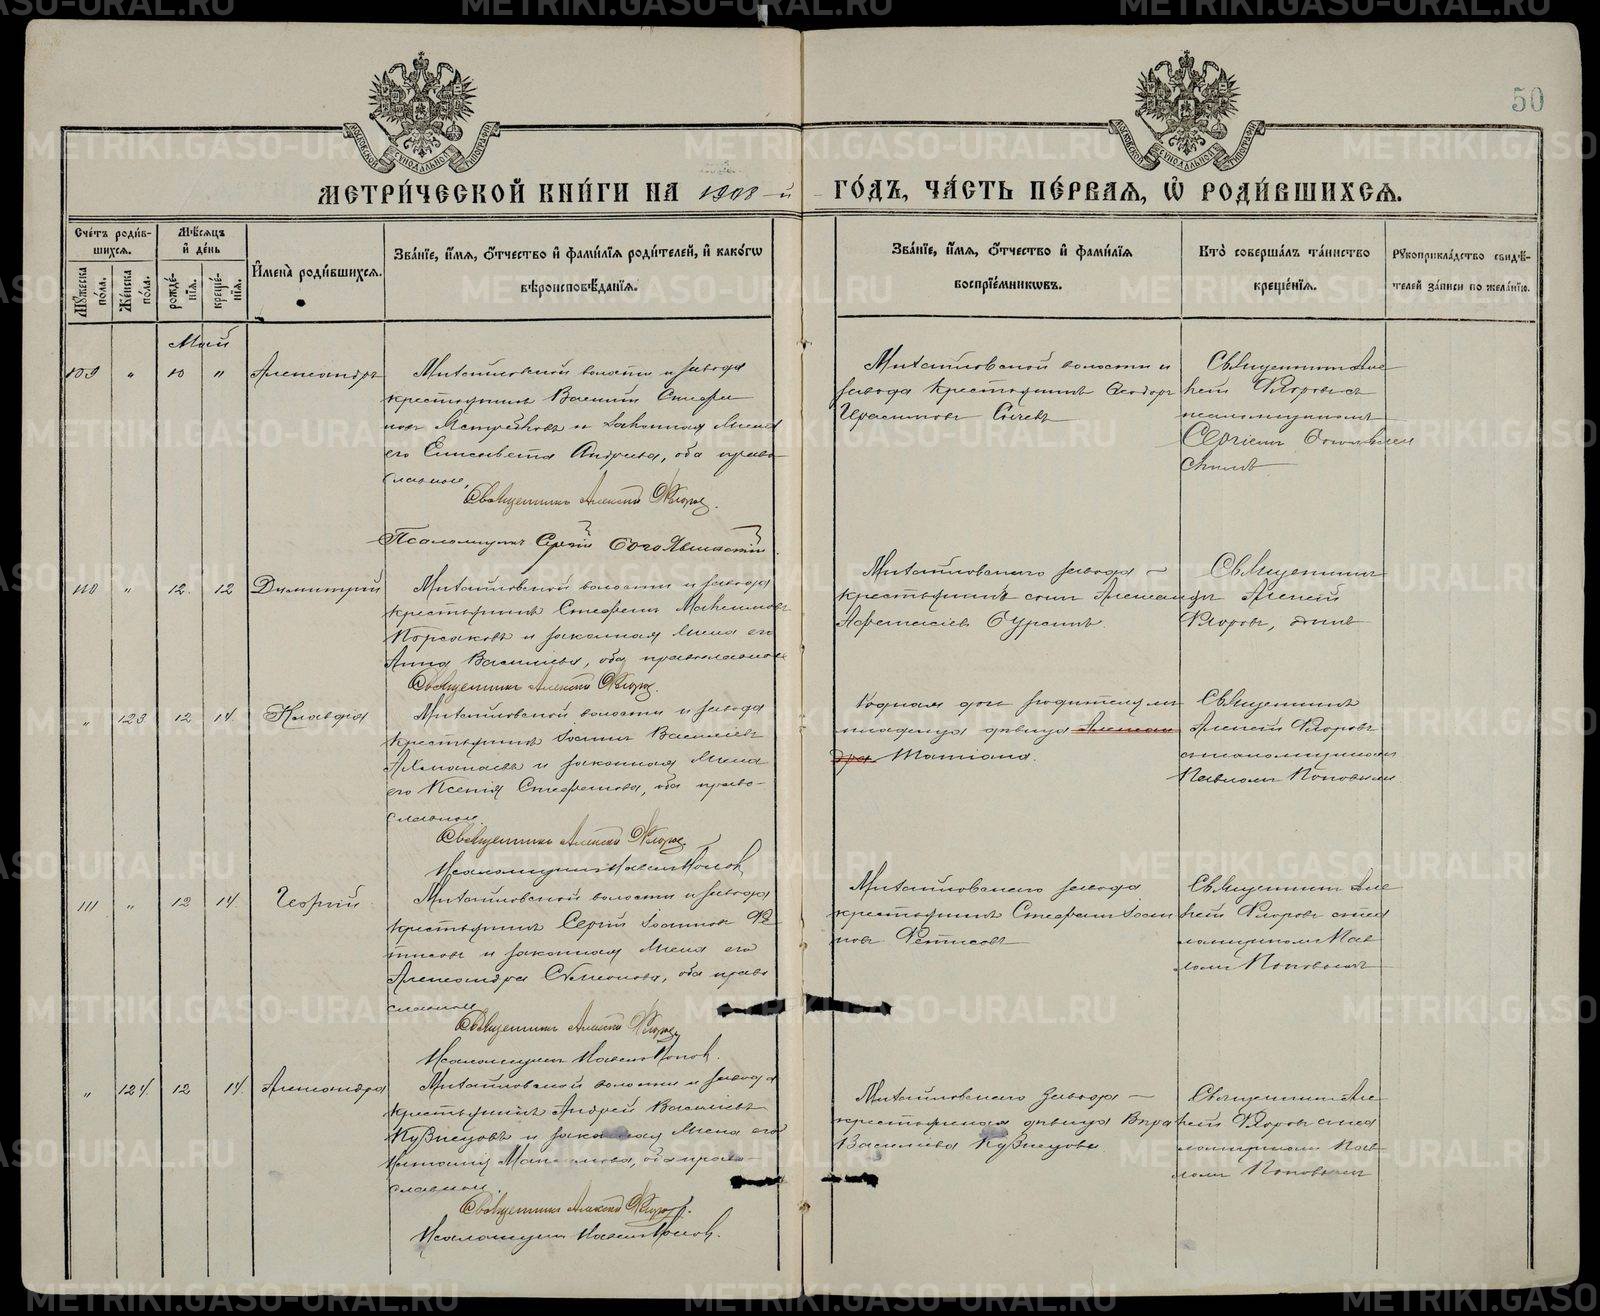 50
МЕТРИ́ЧЕСКОЙ КНИ́ГИ НА 1908-й ГО́ДЪ, ЧА́СТЬ ПЕ́РВАѦ, Ѡ҆ РОДИ́ВШИХСѦ.
Сче́тъ роди́в-
шихсѧ.
Мꙋ́жеска по́ла.
Же́нска по́ла.
Мѣ́сѧцъ
и҆ де́нь
рожде́-
нїѧ.
креще́-
нїѧ.
И҆мена̀ роди́вшихсѧ.
Зва́нїе, и҆́мѧ, ѻ҆́тчество и҆ фами́лїѧ роди́телей, и҆ како́гѡ
вѣроисповѣ́данїѧ.
Зва́нїе, и҆́мѧ, ѻ҆́тчество и҆ фами́лїѧ
воспрїе́мникѡвъ.
Кто̀ соверша́лъ та́инство
креще́нїѧ.
Рꙋкоприкла́дство свидѣ́-
телей за́писи по жела́нїю.
Май
109 " 10 " Александръ
Михайловской волости и завода
крестьянинъ Василій Стефа
новъ и законная жена
его Елисавета Андреева, оба право
славные,
Священникъ Алексѣй Флоровъ.
Псаломщикъ Сергій Богоявленскій.
Михайловской волости и
завода крестьянинъ Ѳеодоръ
Герасимовъ Сычевъ
Священникъ Але
ксѣй Флоровъ съ
псаломщикомъ
Сергіемъ Богоявлен
скимъ
110 " 12. 12 Димитрій
Михайловской волости и завода
крестьянинъ Стефанъ Максимовъ
Корсаковъ и законная жена его
Анна Васильева, оба православные
Священникъ Алексѣй Флоровъ.
Михайловскаго завода —
крестьянинъ Александръ
Аѳанасіевъ
Священникъ
Алексѣй
Флоровъ, одинъ
" 123 12 14 Клавдія
Михайловской волости и завода
крестьянинъ Іоаннъ Васильевъ
и законная жена
его Ксенія Стефанова, оба право-
славные.
Священникъ Алексѣй Флоровъ.
Псаломщикъ Павелъ Поповъ
Родная дочь родителямъ
младенца дѣвица Алексан
дра Татіана.
Священникъ
Алексѣй Флоровъ
съ псаломщикомъ
Павломъ Поповымъ
111 " 12 14 Георгій
Михайловской волости и завода
крестьянинъ Сергій Іоанновъ Фе
тисовъ и законная жена его
Александра Симеонова, оба право
славные
Священникъ Алексѣй Флоровъ
Псаломщикъ Павелъ Поповъ.
Михайловскаго завода
крестьянинъ Стефанъ Іоан
новъ Фетисовъ
Священникъ Але
ксѣй Флоровъ съ пса
ломщикомъ Пав
ломъ Поповымъ
" 124. 12 14 Александра
Михайловской волости и завода
крестьянинъ Андрей Васильевъ
Кузнецовъ и законная жена его
оба право-
славные.
Священникъ Алексѣй Флоровъ.
Псаломщикъ Павелъ Поповъ.
Михайловскаго завода —
крестьянская дѣвица Вѣра
Василіева Кузнецова
Священникъ Але
ксѣй Флоровъ съ пса
ломщикомъ Пав
ломъ Поповымъ
METRIKI.GASO-URAL.RU